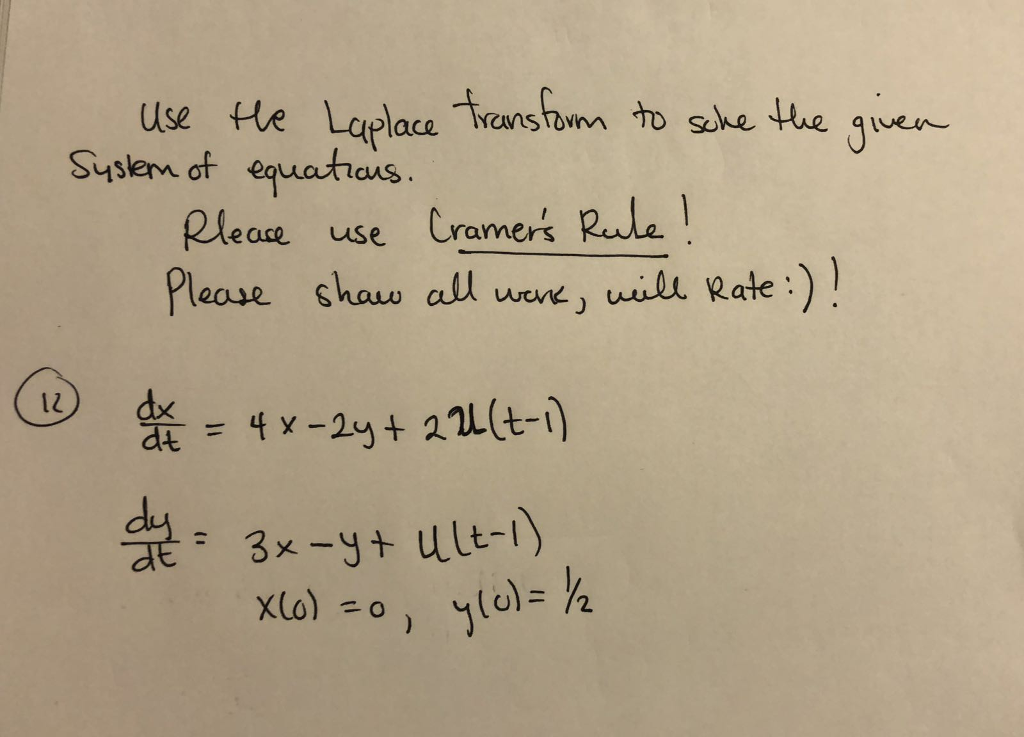 Use the Laplace transform to solve the given
System of equations.
Please use Cramer's Rule!
Please show all work, will Rate :)!
12 dx/dt = 4x - 2y + 2U(t-1)
dy/dt = 3x - y + U(t-1)
x(0) = 0, y(0) = 1/2